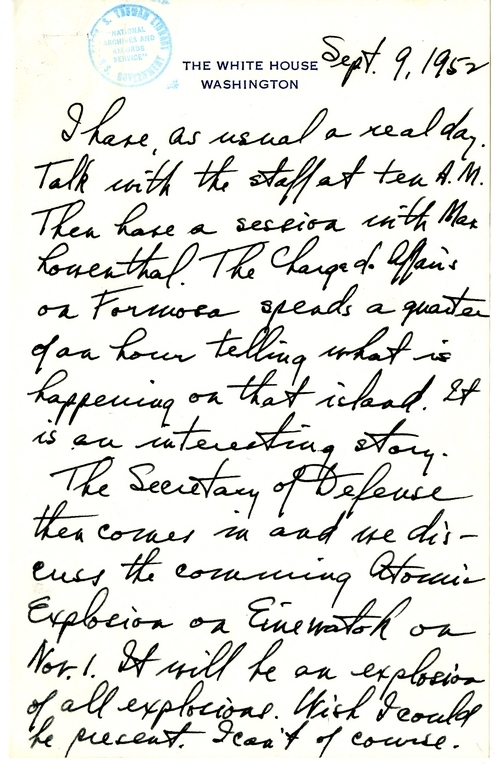 S. TRUMAN LIBRARY
"NATIONAL
ARCHIVES AND
RECORDS
SERVICE"
U.S. GOVERNMENT
THE WHITE HOUSE
WASHINGTON
Sept. 9, 1952
I have, as usual a real day.
Talk with the staff at ten A.M.
Then have a session with Max
Lowenthal. The Charge d. Affairs
on Formosa spends a quarter
of an hour telling what is
happening on that island. It
is an interesting story.
The Secretary of Defense
then comes in and we dis-
cuss the comming Atomic
Explosion on Einewatok on
Nov. 1. It will be an explosion
of all explosions. Wish I could
be present. I can't of course.